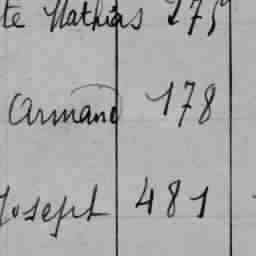 te Mathias 275
Armand 178
Joseph 481